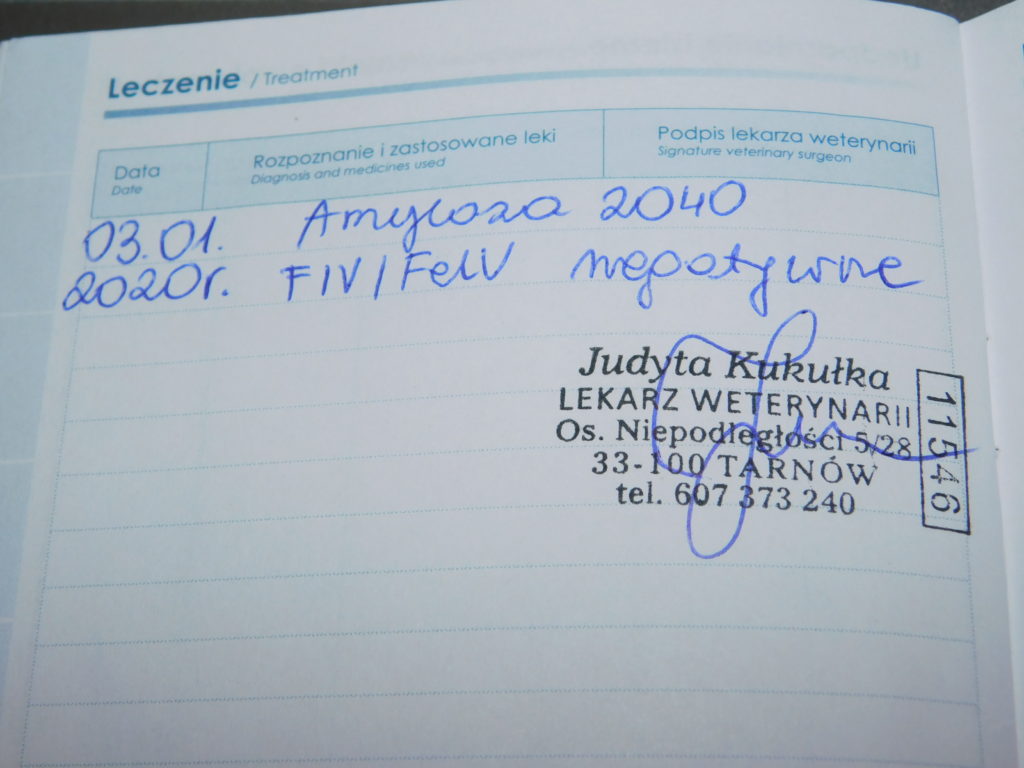 Leczenie / Treatment
Data
Date
Rozpoznanie i zastosowane leki
Diagnosis and medicines used
Podpis lekarza weterynarii
Signature veterinary surgeon
03.01. Amyloza 2040
2020r. FIV/FelV negatywne
Judyta Kukułka
LEKARZ WETERYNARII
Os. Niepodległości 5/28
33-100 TARNÓW
tel. 607 373 240
11546